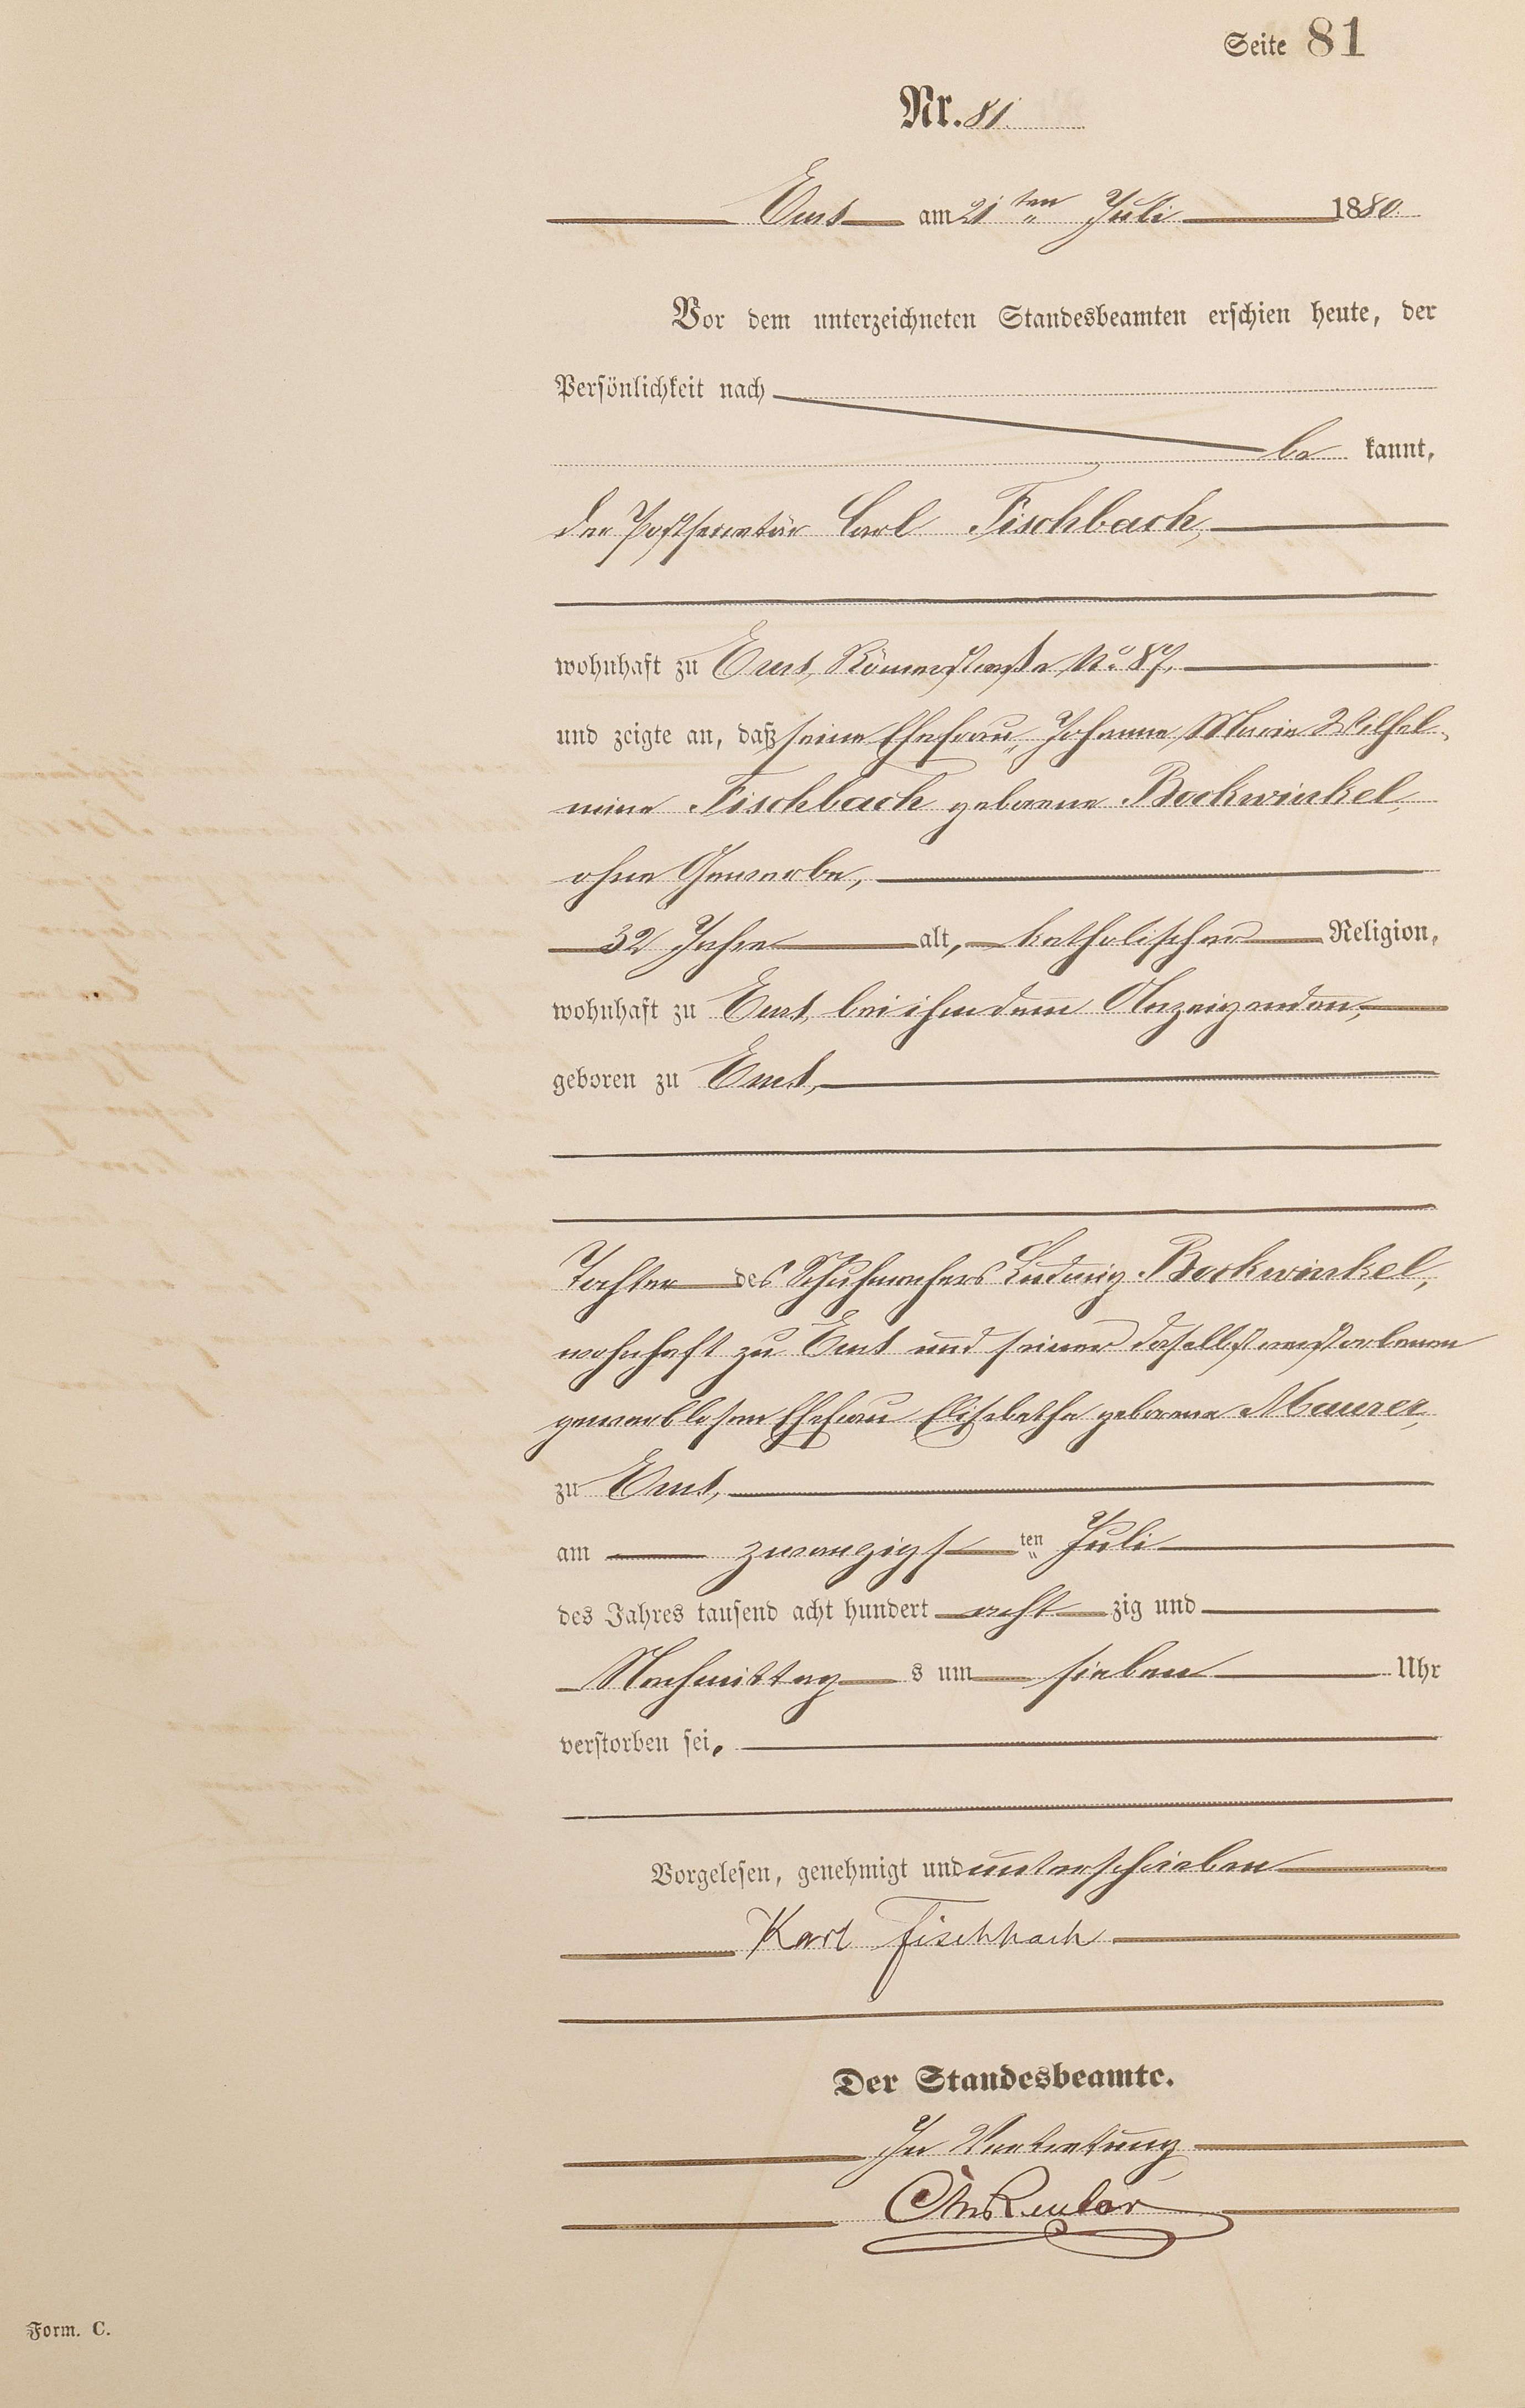 Seite 81
Nr. 81.
Ems am 21ten Juli 1880.
Vor dem unterzeichneten Standesbeamten erschien heute, der
Persönlichkeit nach
be kannt,
der Postsecretär Carl Fischbach,
wohnhaft zu Ems, Römerstraße No. 87,
und zeigte an, daß seine Ehefrau, Johanna Maria Wilhel-
mina Fischbach geborene Bockwinkel,
ohne Gewerbe,
32 Jahre alt, katholischer Religion,
wohnhaft zu Ems, bei ihm dem Anzeigenden,
geboren zu Ems,
Tochter des Schuhmachers Ludwig Bockwinkel,
wohnhaft zu Ems und seiner daselbst verstorbenen
gewerblosen Ehefrau Elisabetha geborene Maurer,
zu Ems,
am zwanzigsten Juli
des Jahres tausend acht hundert acht zig und
Nachmittag s um sieben Uhr
verstorben sei.
Vorgelesen, genehmigt und unterschrieben
Karl Fischbach
Der Standesbeamte.
In Vertretung
Form. C.